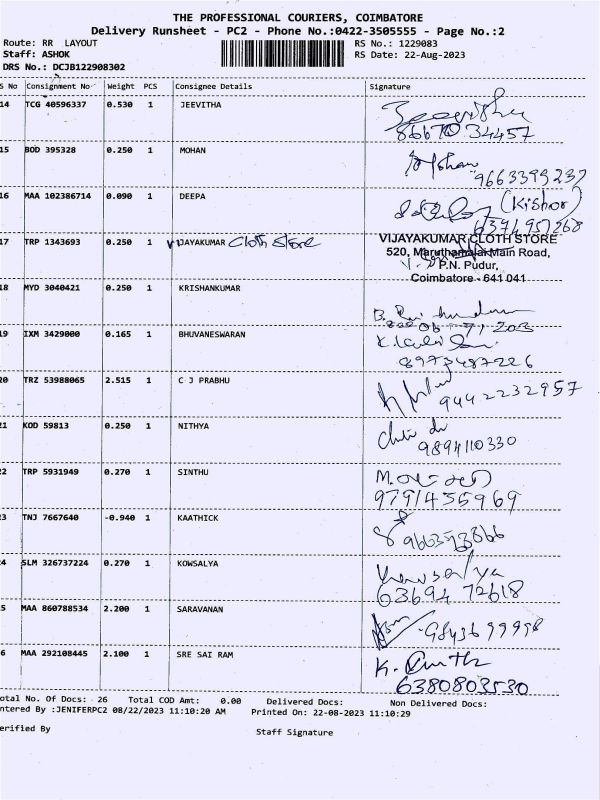 THE PROFESSIONAL COURIERS, COIMBATORE
Delivery Runsheet - PC2 - Phone No.:0422-3505555 - Page No.:2
Route: RR LAYOUT RS No.: 1229083
Staff: ASHOK RS Date: 22-Aug-2023
DRS No.: DCJB122908302
S No Consignment No Weight PCS Consignee Details Signature
14 TCG 40596337 0.530 1 JEEVITHA
8667034457
15 BOD 395328 0.250 1 MOHAN
9663399237
16 MAA 102386714 0.090 1 DEEPA (Kishor)
6394957268
17 TRP 1343693 0.250 1 VIJAYAKUMAR Cloth Store VIJAYAKUMAR CLOTH STORE
520, Maruthamalai Main Road,
P.N. Pudur,
Coimbatore - 641 041
18 MYD 3040421 0.250 1 KRISHANKUMAR
19 IXM 3429000 0.165 1 BHUVANESWARAN
8973487226
20 TRZ 53988065 2.515 1 C J PRABHU
9442232957
21 KOD 59813 0.250 1 NITHYA
9894110330
22 TRP 5931949 0.270 1 SINTHU
9791455969
23 TNJ 7667640 -0.940 1 KAATHICK
24 SLM 326737224 0.270 1 KOWSALYA Kowsalya
6369472618
25 MAA 860788534 2.200 1 SARAVANAN
9843699998
26 MAA 292108445 2.100 1 SRE SAI RAM
6380803530
otal No. Of Docs: 26 Total COD Amt: 0.00 Delivered Docs: Non Delivered Docs:
ntered By :JENIFERPC2 08/22/2023 11:10:20 AM Printed On: 22-08-2023 11:10:29
erified By Staff Signature